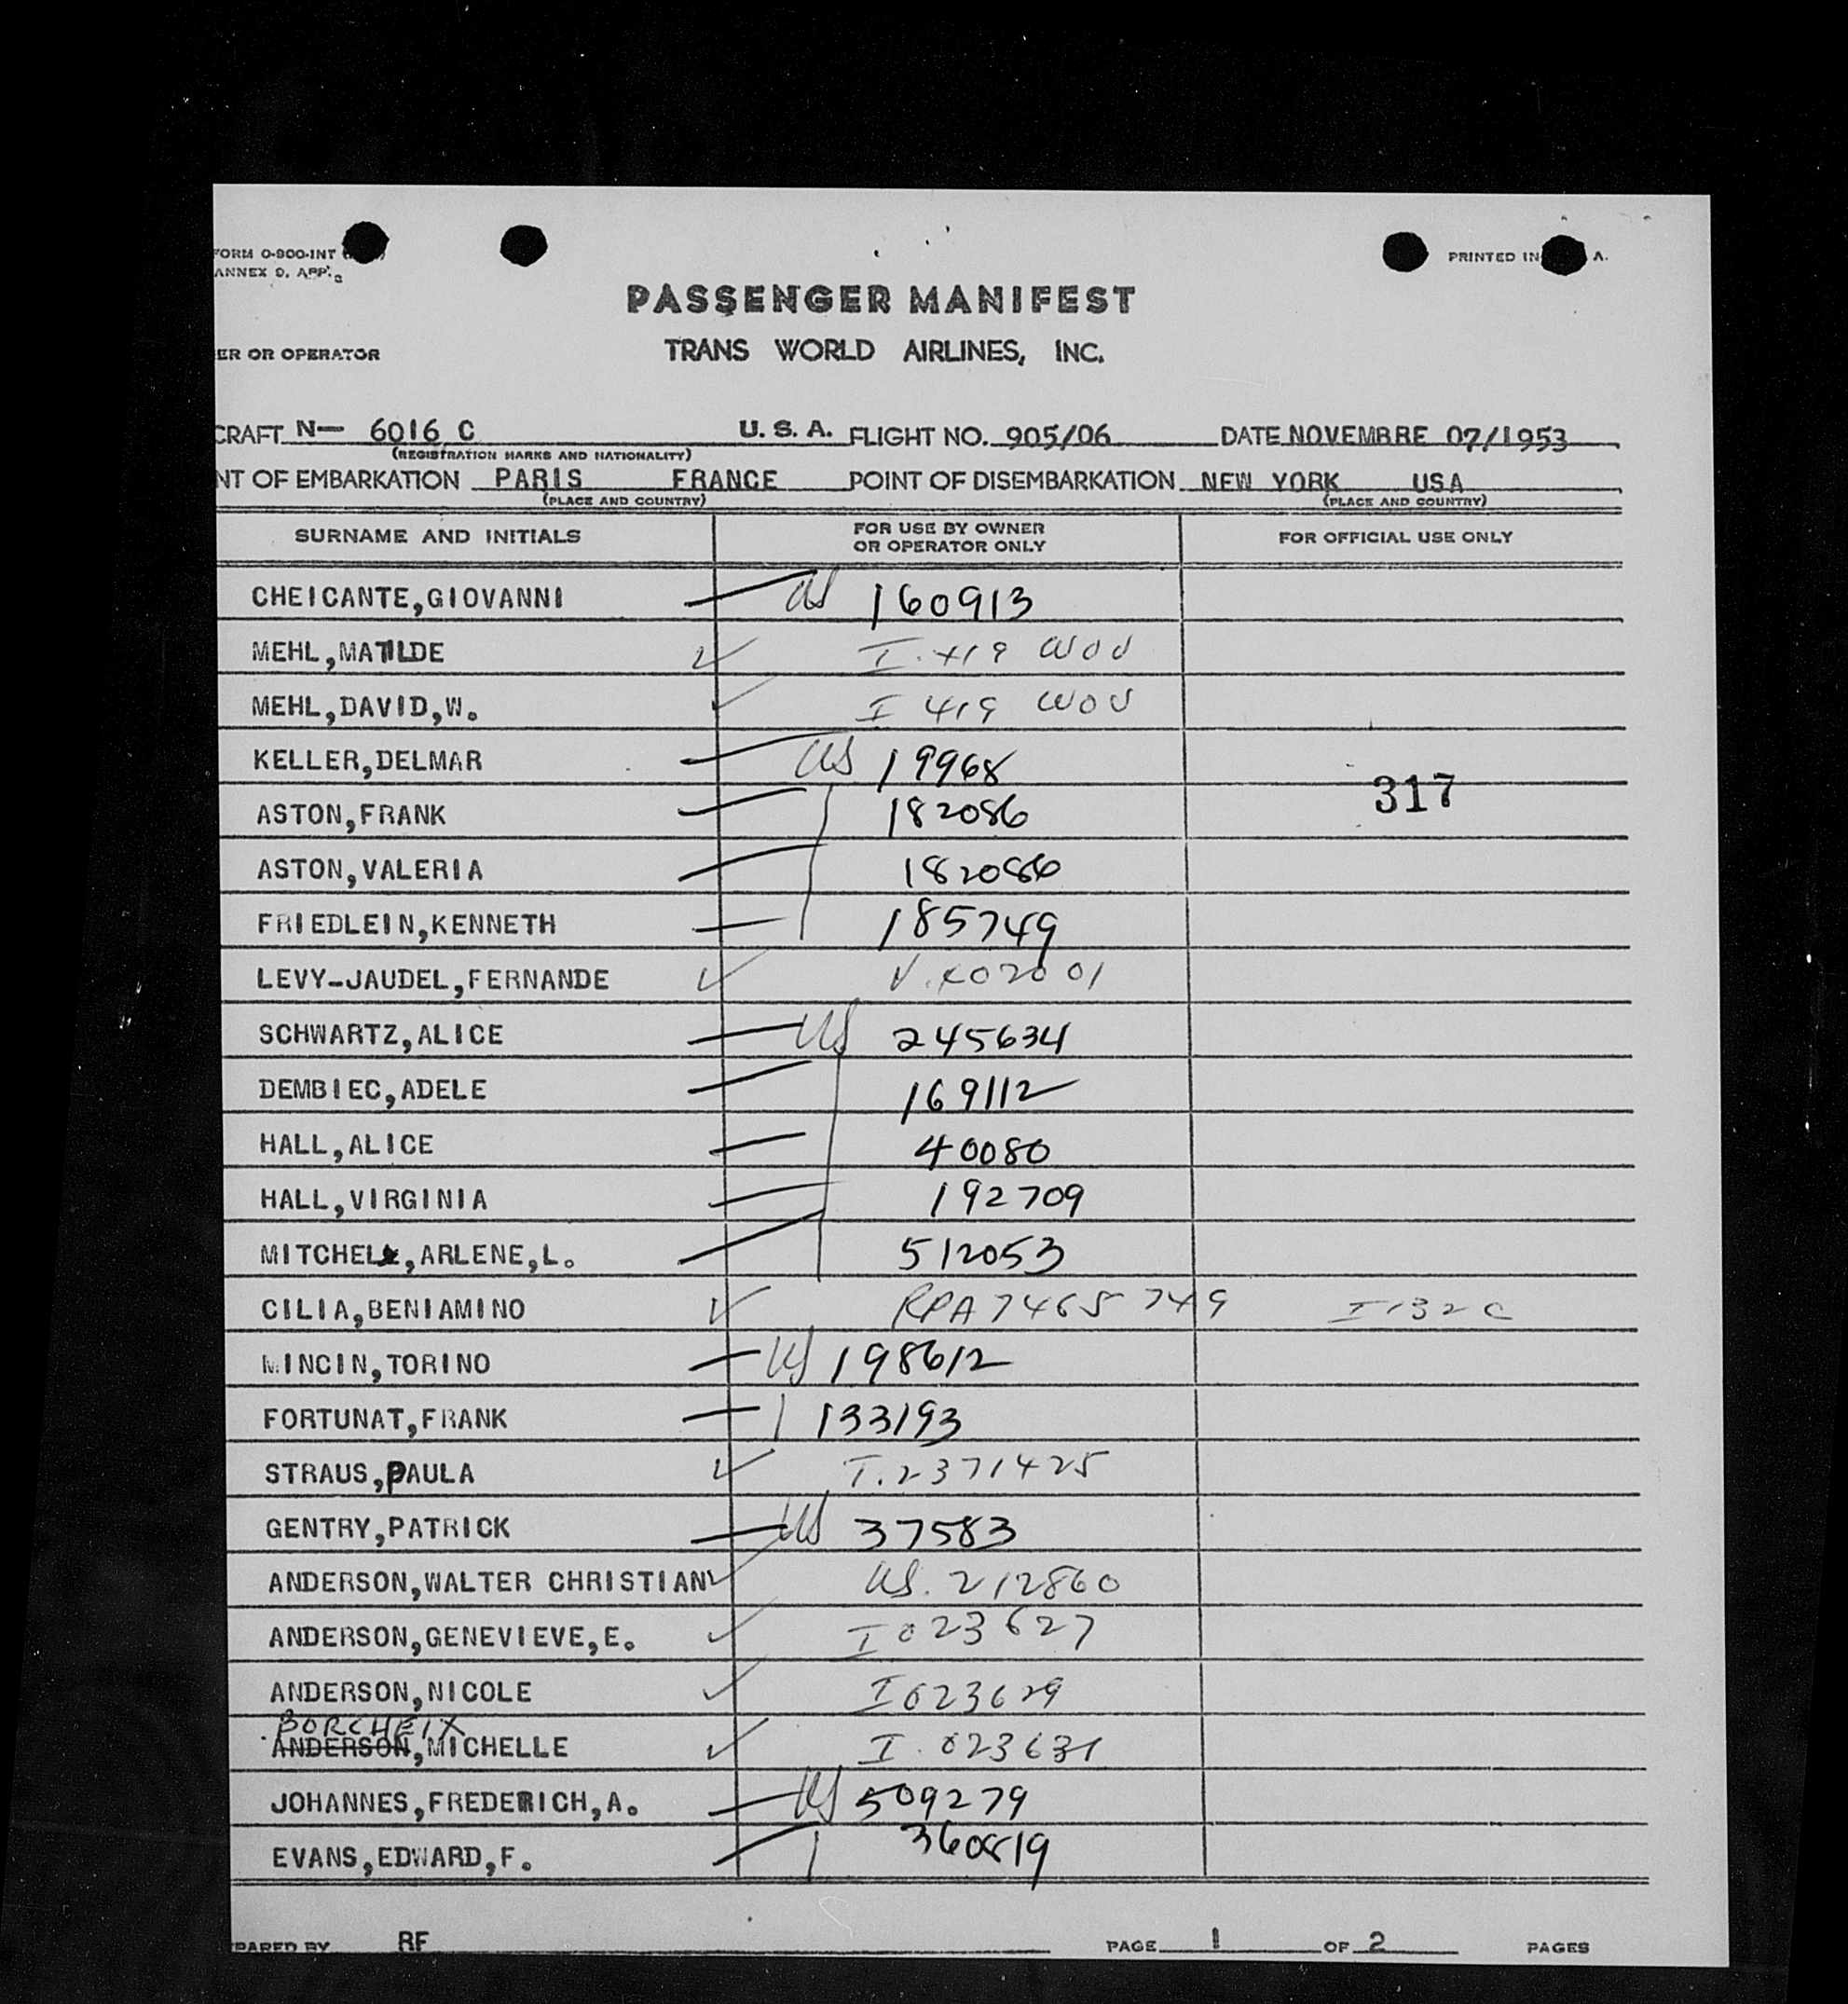 FORM O-900-INT
ANNEX 9, APP.
PRINTED IN A.
PASSENGER MANIFEST
ER OR OPERATOR
TRANS WORLD AIRLINES, INC.
CRAFT N— 6016 C U. S. A. FLIGHT NO. 905/06 DATE NOVEMBRE 07/1953
(REGISTRATION MARKS AND NATIONALITY)
NT OF EMBARKATION PARIS FRANCE POINT OF DISEMBARKATION NEW YORK USA
(PLACE AND COUNTRY) (PLACE AND COUNTRY)
SURNAME AND INITIALS FOR USE BY OWNER OR OPERATOR ONLY FOR OFFICIAL USE ONLY
CHEICANTE,GIOVANNI US 160913
MEHL,MATILDE I.419 WOV
MEHL,DAVID,W. I 419 WOV
KELLER,DELMAR US 19968
317
ASTON,FRANK 182086
ASTON,VALERIA 182086
FRIEDLEIN,KENNETH 185749
LEVY-JAUDEL,FERNANDE V.402001
SCHWARTZ,ALICE US 245634
DEMBIEC,ADELE 169112
HALL,ALICE 40080
HALL,VIRGINIA 192709
MITCHELL,ARLENE,L. 512053
CILIA,BENIAMINO RPA 7465749 I 132 C
MINCIN,TORINO US 198612
FORTUNAT,FRANK 133193
STRAUS,PAULA I.2371425
GENTRY,PATRICK US 37583
ANDERSON,WALTER CHRISTIAN US. 212860
ANDERSON,GENEVIEVE,E. I 023627
ANDERSON,NICOLE I 023629
BORCHEIX
ANDERSON,MICHELLE I. 023631
JOHANNES,FREDERICH,A. US 509279
EVANS,EDWARD,F. 360819
PARED BY RF PAGE 1 OF 2 PAGES